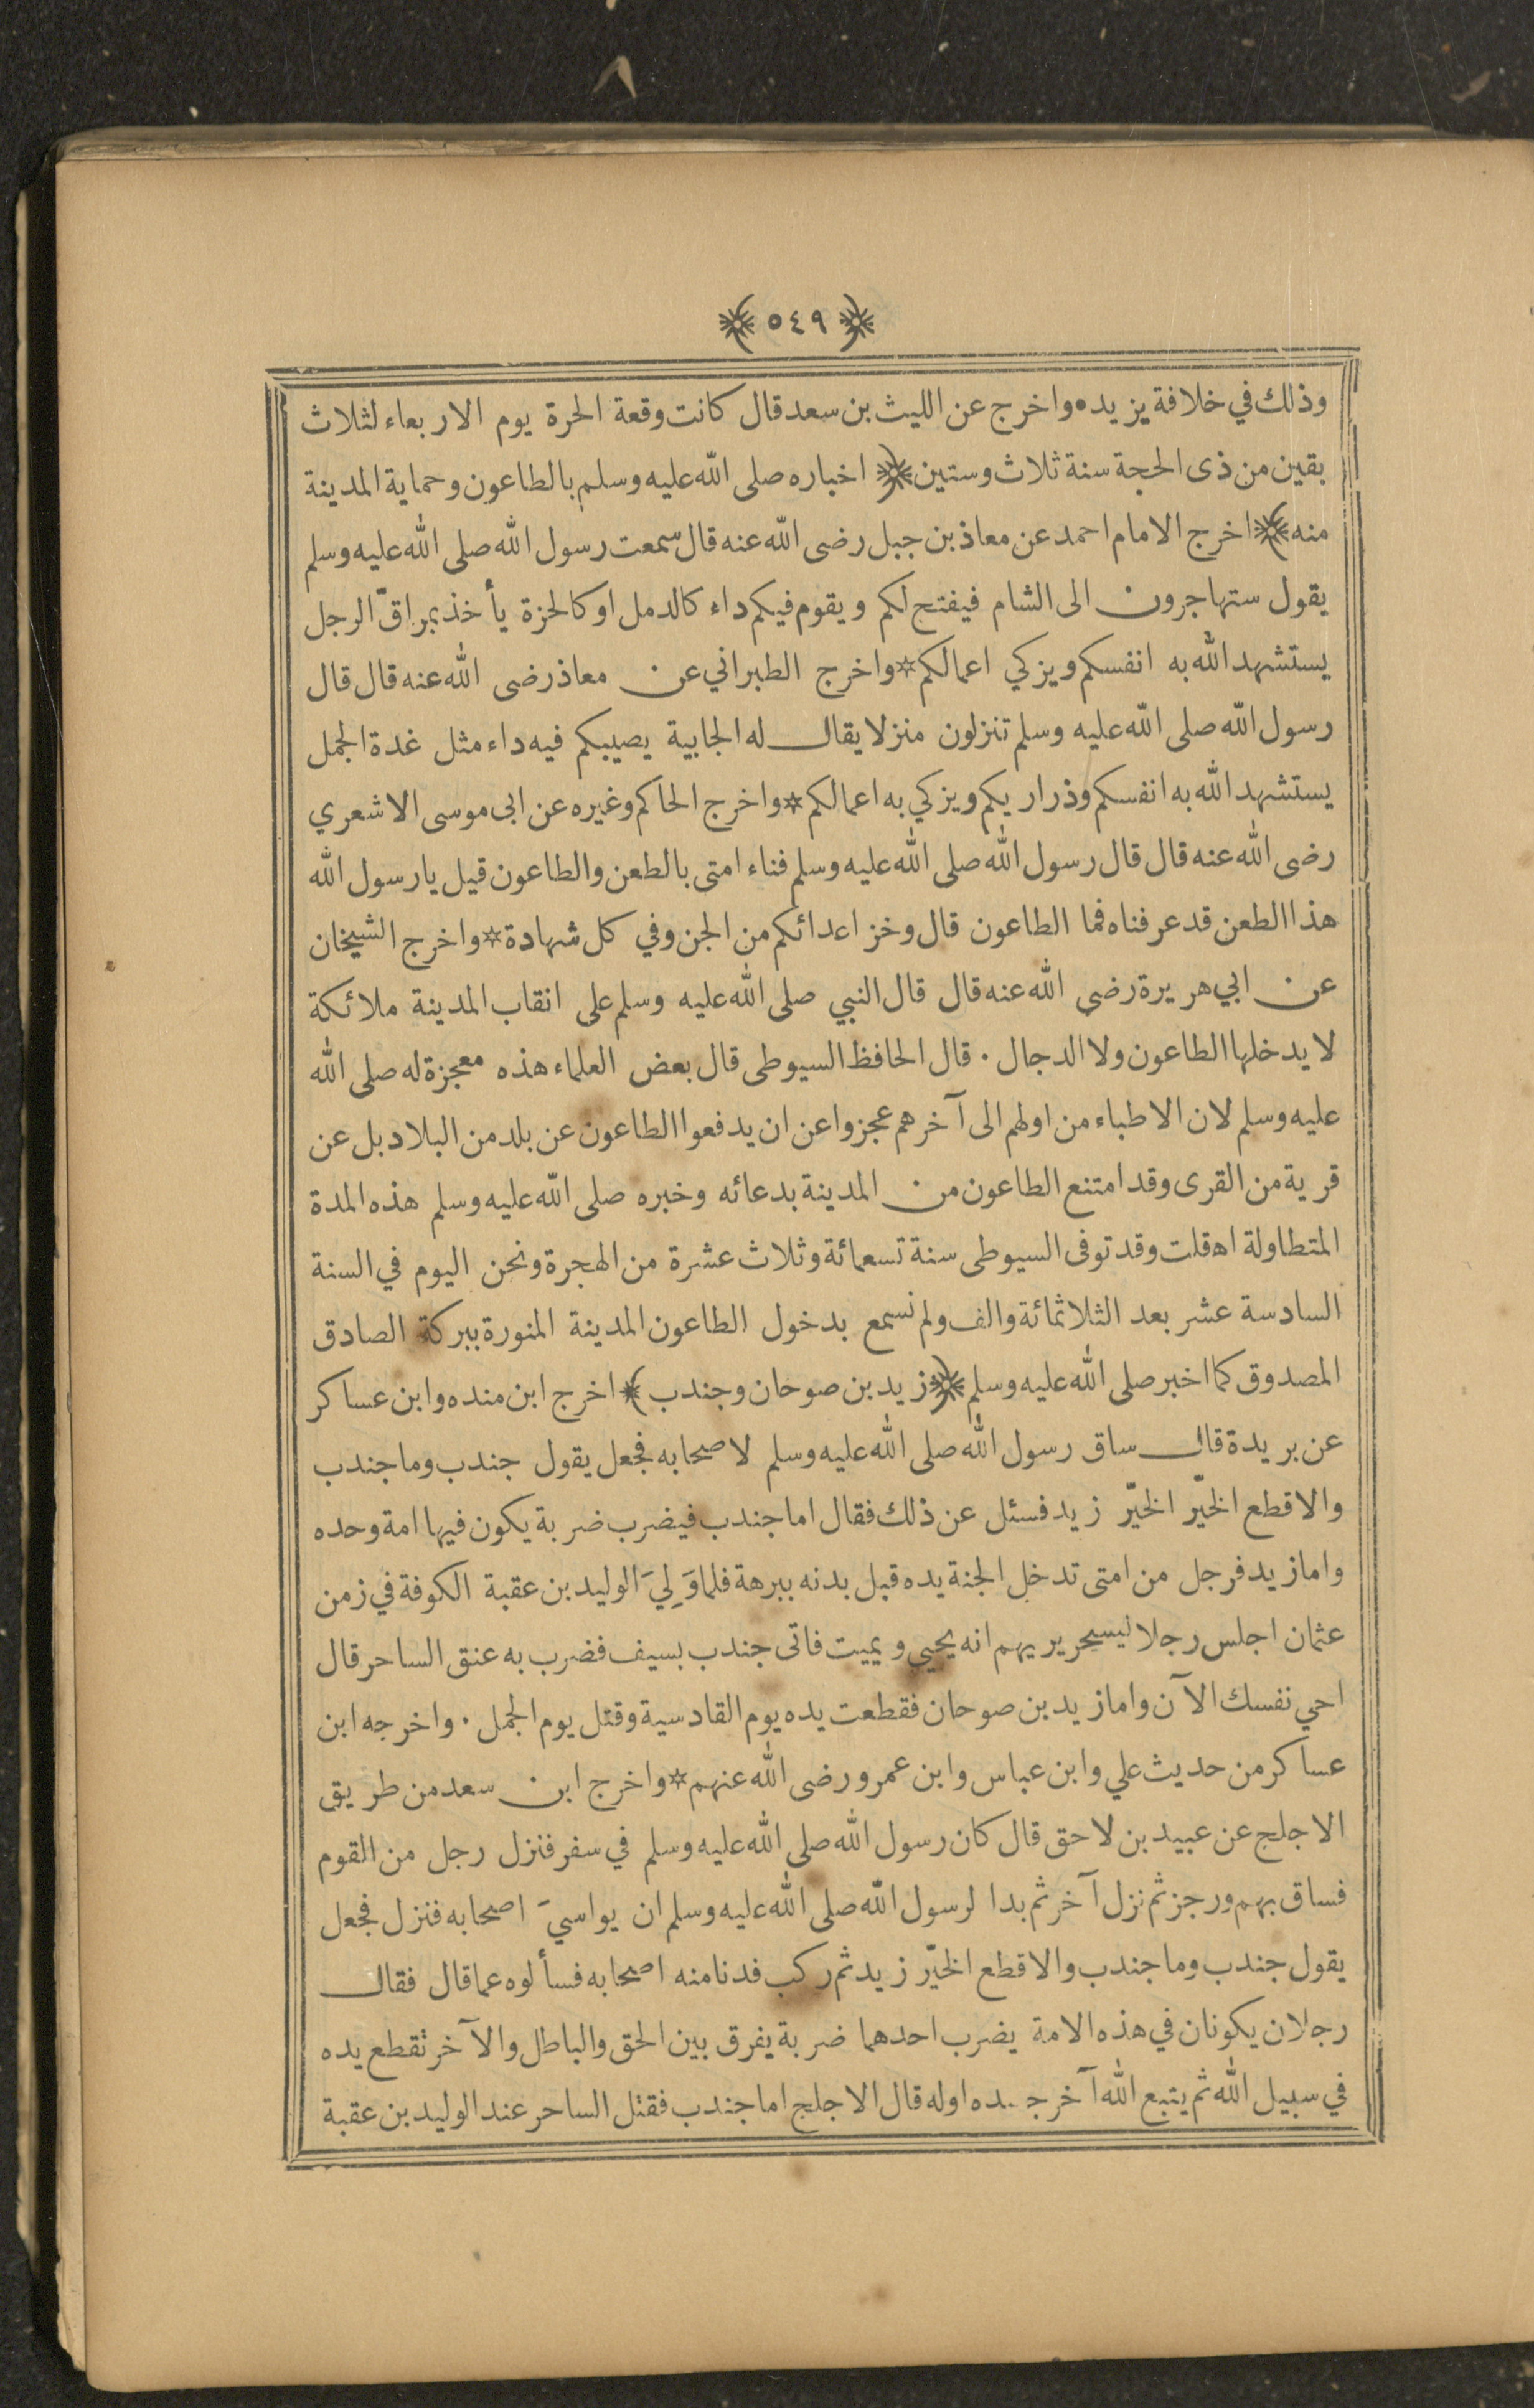 ﴿ ٥٤٩ ﴾
وذلك في خلافة يزيد ٭ واخرج عن الليث بن سعد قال كانت وقعة الحرة يوم الاربعاء لثلاث
بقين من ذى الحجة سنة ثلاث وستين ﴿ اخباره صلى الله عليه وسلم بالطاعون وحماية المدينة
منه ﴾ اخرج الامام احمد عن معاذ بن جبل رضى الله عنه قال سمعت رسول الله صلى الله عليه وسلم
يقول ستهاجرون الى الشام فيفتح لكم ويقوم فيكم داء كالدمل او كالحزة يأخذ بمراقّ الرجل
يستشهد الله به انفسكم ويزكي اعمالكم ٭ واخرج الطبراني عن معاذ رضى الله عنه قال قال
رسول الله صلى الله عليه وسلم تنزلون منزلا يقال له الجابية يصيبكم فيه داء مثل غدة الجمل
يستشهد الله به انفسكم وذراريكم ويزكي به اعمالكم ٭ واخرج الحاكم وغيره عن ابى موسى الاشعري
رضى الله عنه قال قال رسول الله صلى الله عليه وسلم فناء امتى بالطعن والطاعون قيل يارسول الله
هذا الطعن قد عرفناه فما الطاعون قال وخز اعدائكم من الجن وفي كل شهادة ٭ واخرج الشيخان
عن ابي هريرة رضى الله عنه قال قال النبي صلى الله عليه وسلم على انقاب المدينة ملائكة
لا يدخلها الطاعون ولا الدجال ٠ قال الحافظ السيوطى قال بعض العلماء هذه معجزة له صلى الله
عليه وسلم لان الاطباء من اولهم الى آخرهم عجزوا عن ان يدفعوا الطاعون عن بلد من البلاد بل عن
قرية من القرى وقد امتنع الطاعون من المدينة بدعائه وخبره صلى الله عليه وسلم هذه المدة
المتطاولة اه قلت وقد توفى السيوطى سنة تسعمائة وثلاث عشرة من الهجرة ونحن اليوم في السنة
السادسة عشر بعد الثلاثمائة والف ولم نسمع بدخول الطاعون المدينة المنورة ببركة الصادق
المصدوق كما اخبر صلى الله عليه وسلم ﴿ زيد بن صوحان وجندب ﴾ اخرج ابن منده وابن عساكر
عن بريدة قال ساق رسول الله صلى الله عليه وسلم لاصحابه فجعل يقول جندب وما جندب
والاقطع الخيّر الخيّر زيد فسئل عن ذلك فقال اما جندب فيضرب ضربة يكون فيها امة وحده
واما زيد فرجل من امتى تدخل الجنة يده قبل بدنه ببرهة فلما وَلِيَ الوليد بن عقبة الكوفة في زمن
عثمان اجلس رجلا ليسحر يريهم انه يحيي ويميت فاتى جندب بسيف فضرب به عنق الساحر قال
احي نفسك الآن واما زيد بن صوحان فقطعت يده يوم القادسية وقتل يوم الجمل ٠ واخرجه ابن
عساكر من حديث علي وابن عباس وابن عمرو رضى الله عنهم ٭ واخرج ابن سعد من طريق
الاجلح عن عبيد بن لاحق قال كان رسول الله صلى الله عليه وسلم في سفر فنزل رجل من القوم
فساق بهم ورجز ثم نزل آخر ثم بدا لرسول الله صلى الله عليه وسلم ان يواسيَ اصحابه فنزل فجعل
يقول جندب وما جندب والاقطع الخيّر زيد ثم ركب فدنا منه اصحابه فسألوه عما قال فقال
رجلان يكونان في هذه الامة يضرب احدهما ضربة يفرق بين الحق والباطل والآخر تقطع يده
في سبيل الله ثم يتبع الله آخر جسده اوله قال الاجلح اما جندب فقتل الساحر عند الوليد بن عقبة